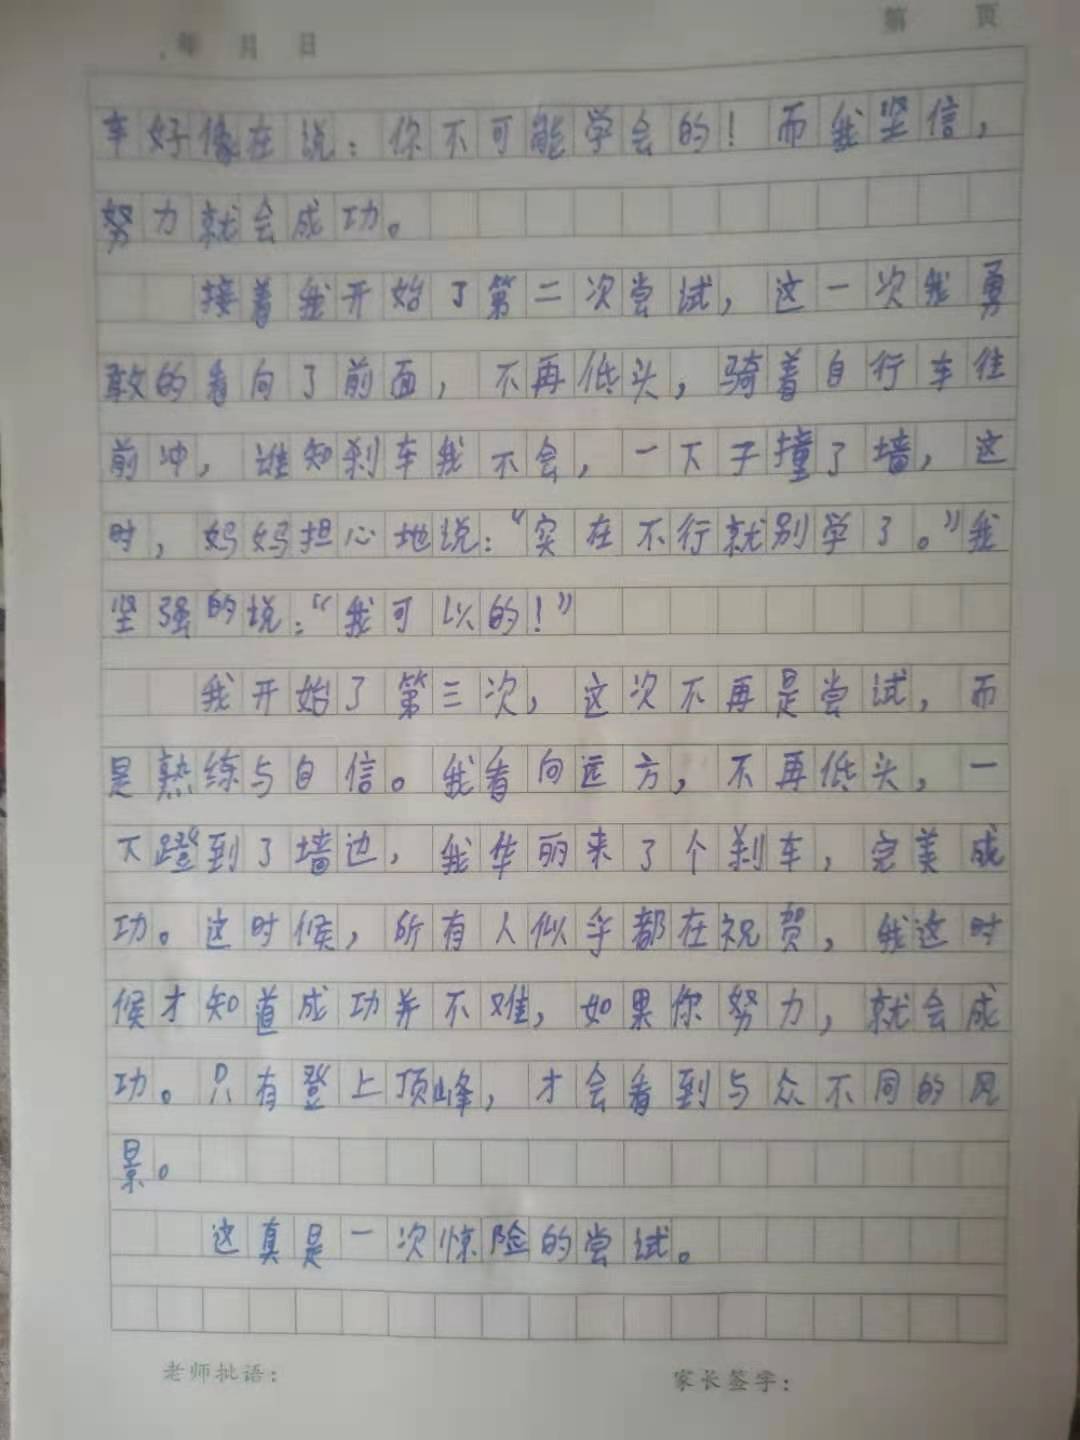 年 月 日 第 页
车好像在说：你不可能学会的！而我坚信，
努力就会成功。
接着我开始了第二次尝试，这一次我勇
敢的看向了前面，不再低头，骑着自行车往
前冲，谁知刹车我不会，一下子撞了墙，这
时，妈妈担心地说：“实在不行就别学了。”我
坚强的说：“我可以的！”
我开始了第三次，这次不再是尝试，而
是熟练与自信。我看向远方，不再低头，一
下蹬到了墙边，我华丽来了个刹车，完美成
功。这时候，所有人似乎都在祝贺，我这时
候才知道成功并不难，如果你努力，就会成
功。只有登上顶峰，才会看到与众不同的风
景。
这真是一次惊险的尝试。
老师批语： 家长签字：